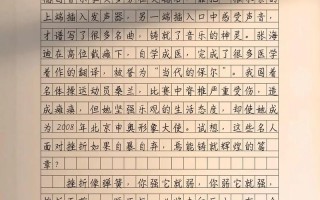 上端插入发声器,另一端插入口中感受声音,
才谱写了很多名曲,铸就了音乐的神灵。张海
迪在高位截瘫下,自学成医,完成了很多医学
著作的翻译,被誉为“当代的保尔”。我国著
名体操运动员桑兰,比赛中脊椎严重受伤,造
成瘫痪,但她坚强乐观的生活态度,却使她成
为2008年北京申奥形象大使。试想,这些名人
面对挫折如果自暴自弃,焉能铸就辉煌的篇
章?
挫折像弹簧,你强它就弱,你弱它就强,